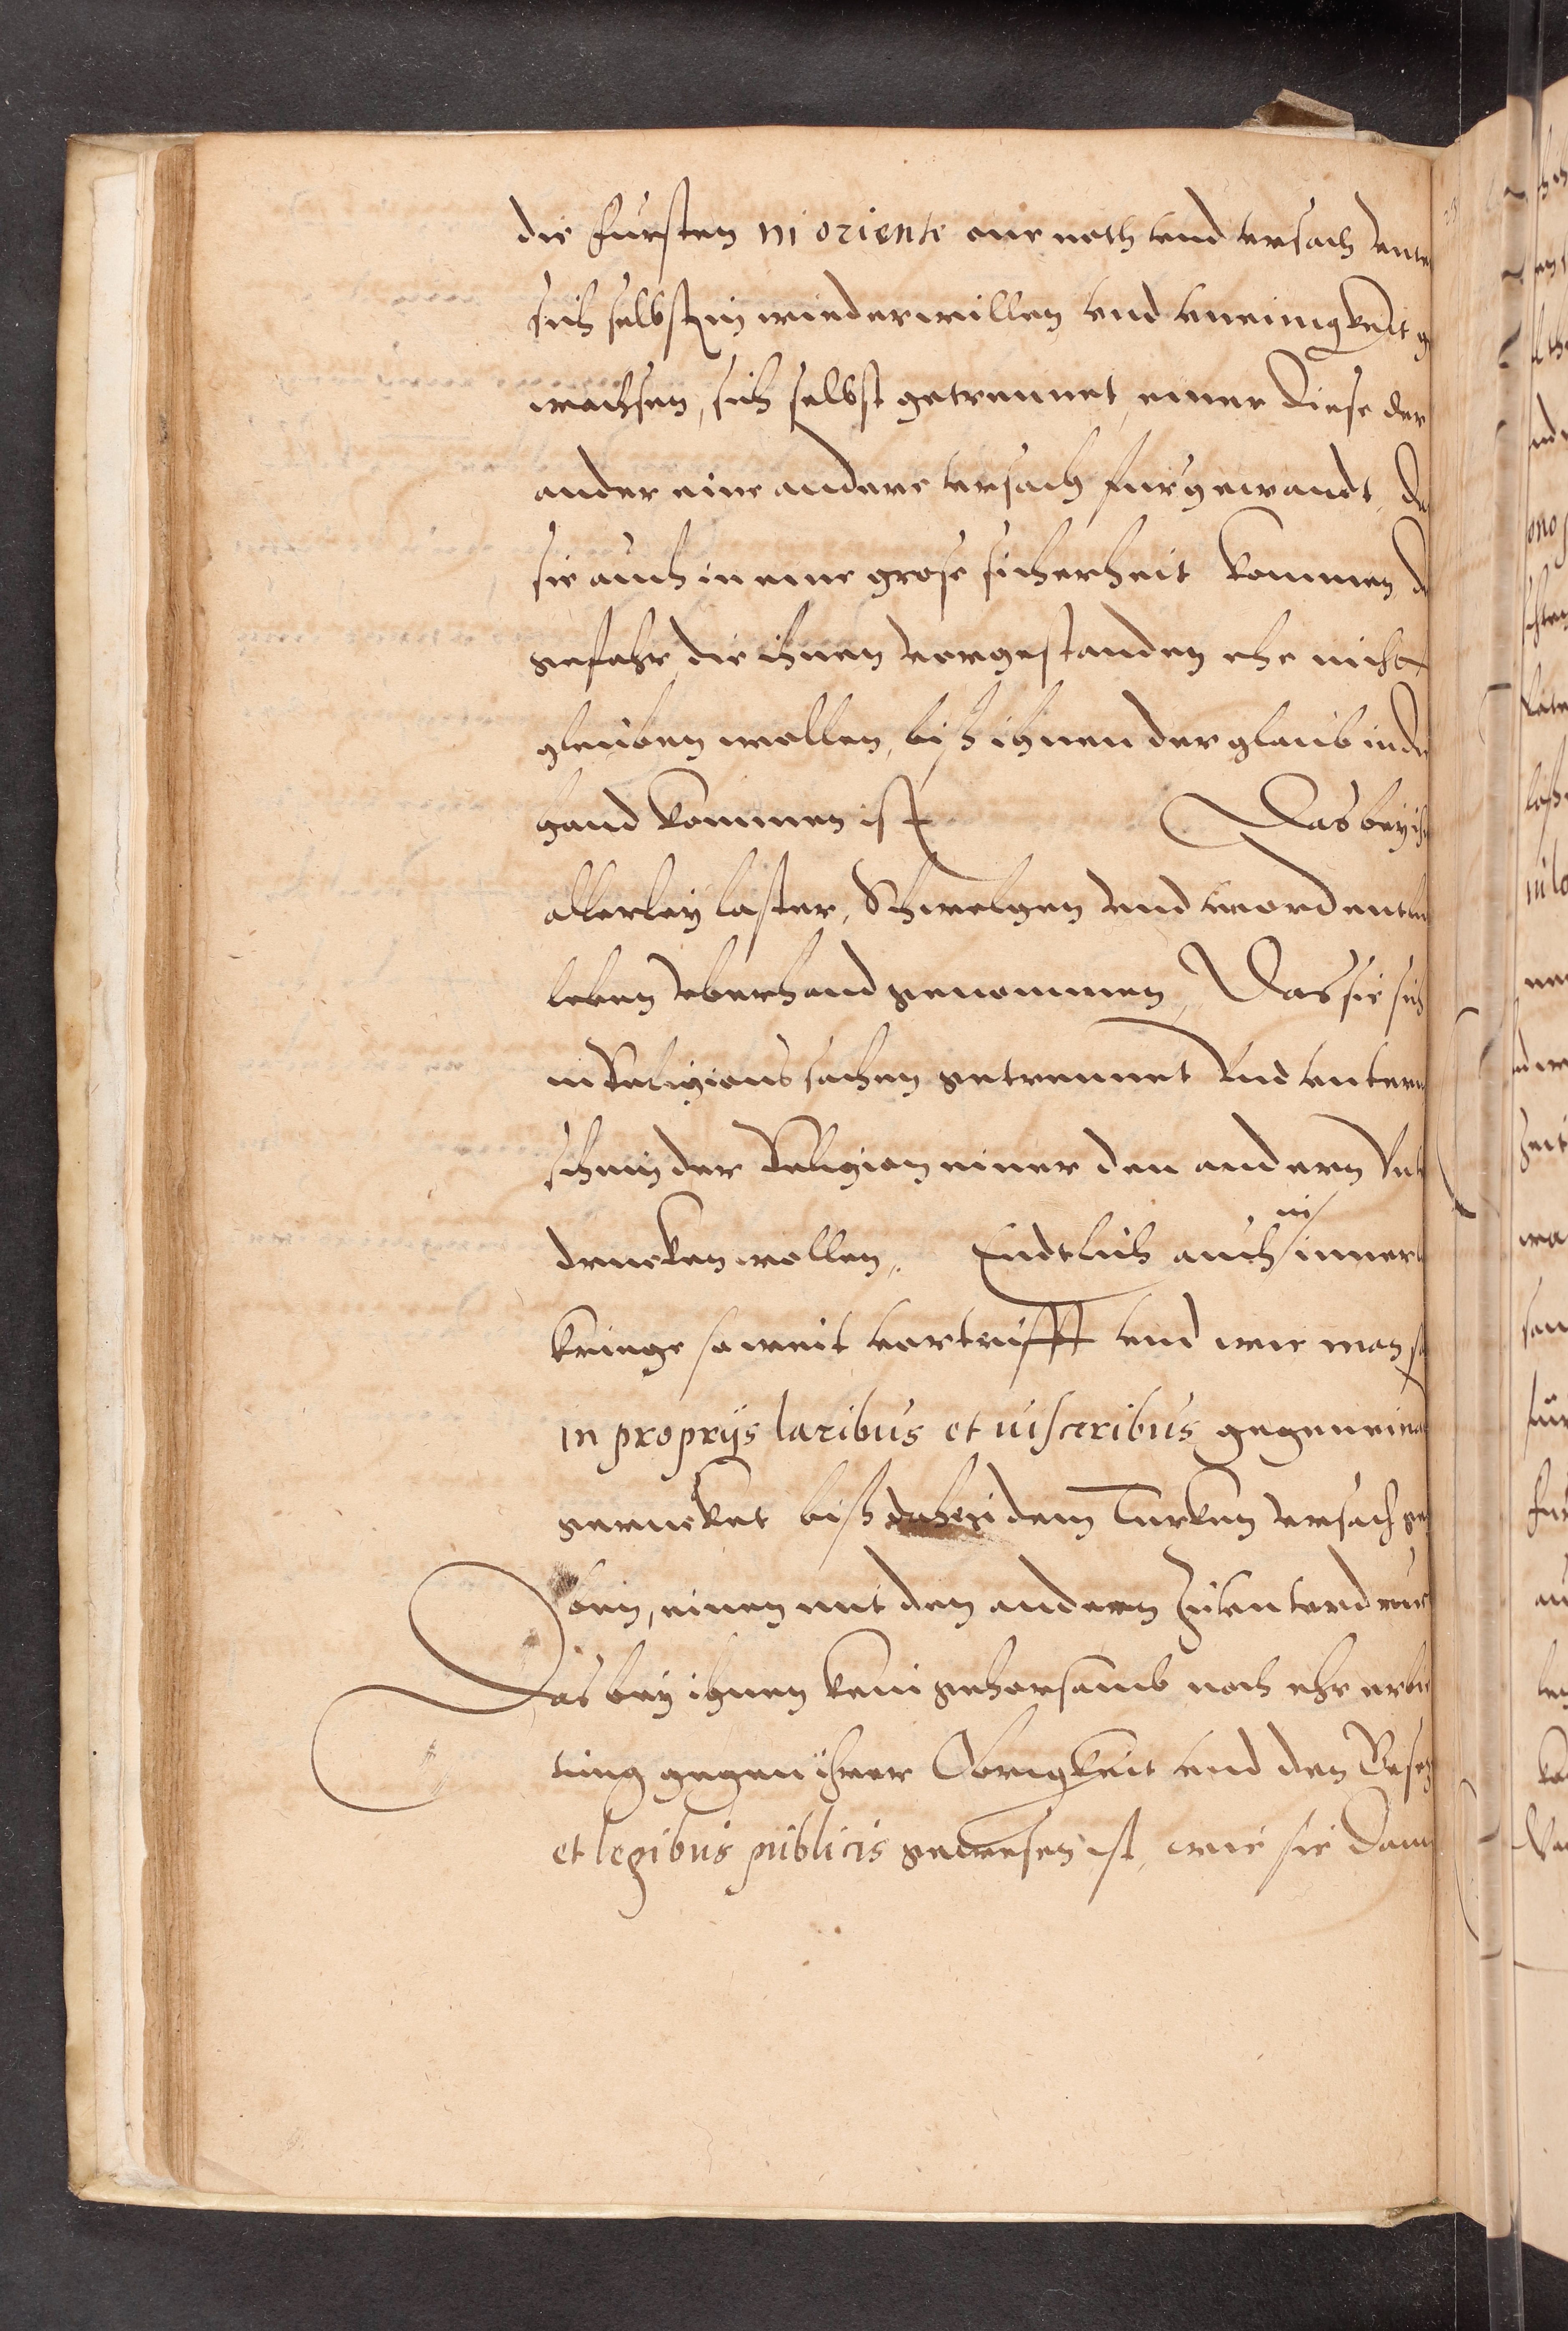 die Fursten in oriente one noth vnd vrsach vnte
sich selbst in wiederwillen vnd vneinigkeit g
wachsen, sich selbst getrennet, einer diese der
ander eine andere vrsach furgewandt, da
sie auch in eine grose sicherheit kommen, d
gefahr, die ihnen vorgestanden ehe nicht
gleuben wollen, biß ihnen der glaub in de
hand kommen ist Das bey ih
allerley laster, Schwelgen vnd vnordentli
leben vberhand genommen, Das sie sich
in Religions sachen getrennet vnd vnterm
schein der Religion einer den andern vnt
drucken wollen. Endtlich auch in innerl
kriege so weit vertiefft vnd wie man sa
in proprijs laribus et uisceribus gegen eina
gerucket biß daheri dem Turken vrsach ge
ben, einen mit den andern zu vnterdruc
Das bey ihnen kein gehorsamb noch ehr erbie
tung gegen ihrer Obrigkeit vnd den Gesetz
et legibus publicis gewesen ist, wie sie dann